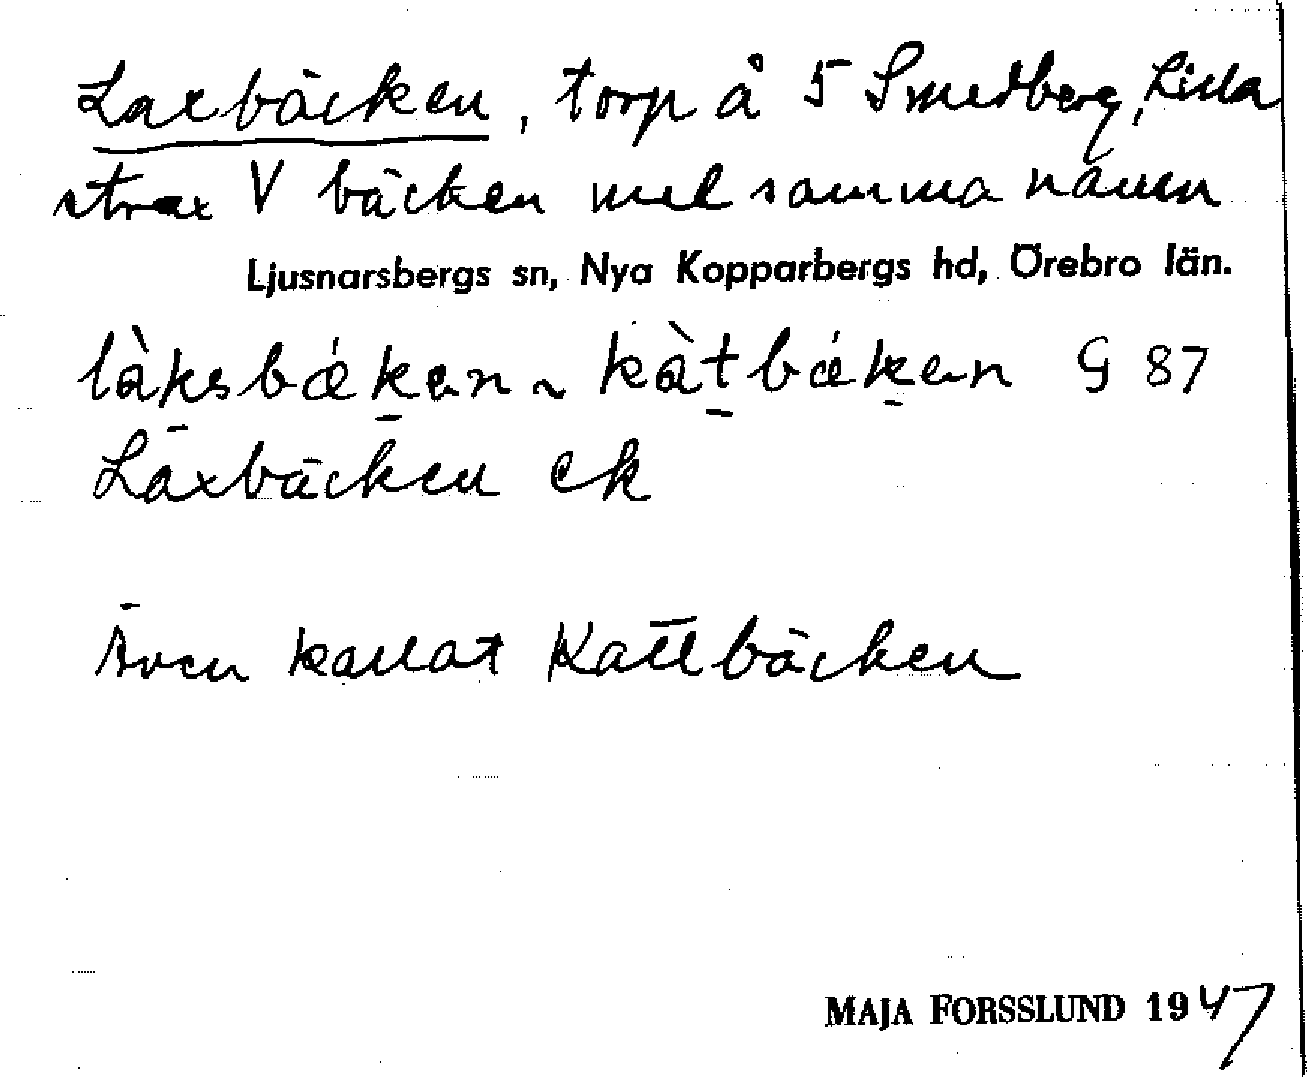 Laxbäcken, torp å 5 Smedberg, Lilla
strax V bäcken med samma namn
Ljusnarsbergs sn, Nya Kopparbergs hd, Örebro län.
làksbǽkan ~ kàtbǽkan G 87
Laxbäcken ek
Även kallat Kattbäcken
MAJA FORSSLUND 1947